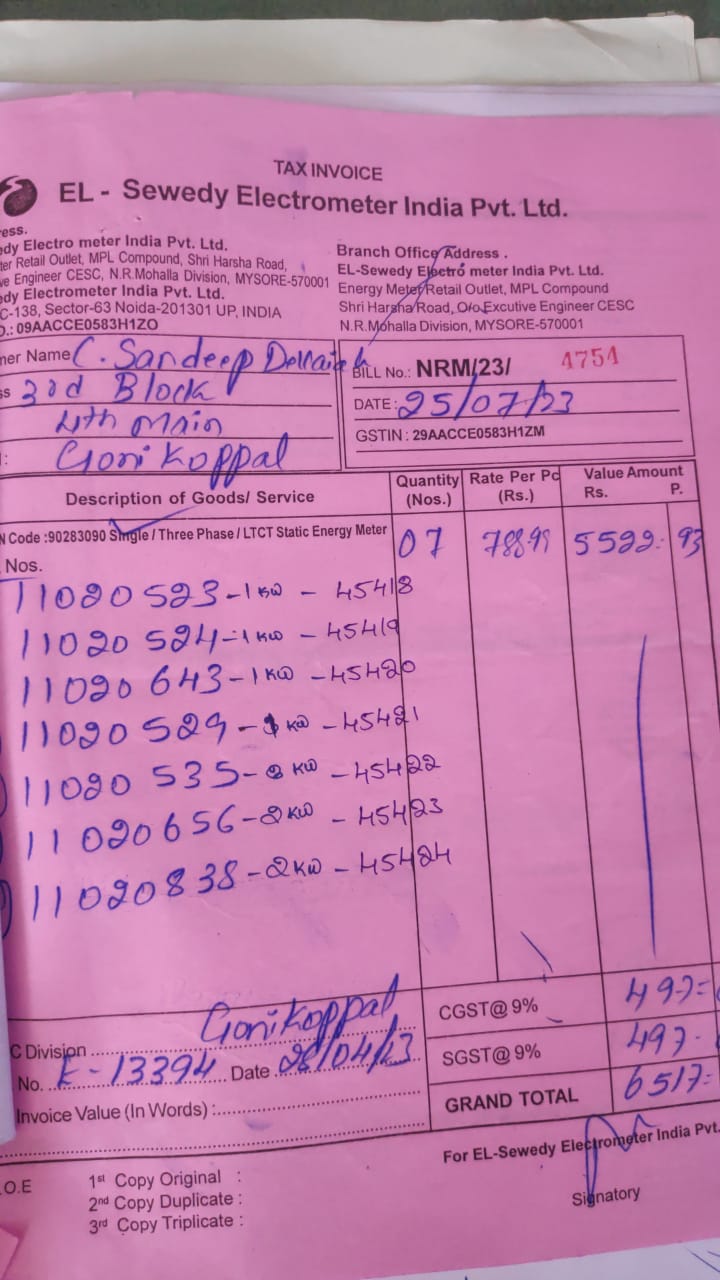 TAX INVOICE
EL - Sewedy Electrometer India Pvt. Ltd.
ess.
edy Electro meter India Pvt. Ltd.
ter Retail Outlet, MPL Compound, Shri Harsha Road,
ve Engineer CESC, N.R.Mohalla Division, MYSORE-570001
edy Electrometer India Pvt. Ltd.
C-138, Sector-63 Noida-201301 UP, INDIA
O.: 09AACCE0583H1ZO
Branch Office Address .
EL-Sewedy Electro meter India Pvt. Ltd.
Energy Meter Retail Outlet, MPL Compound
Shri Harsha Road, O/o Excutive Engineer CESC
N.R.Mohalla Division, MYSORE-570001
mer Name C. Sandeep
ss 3rd Block
4th main
: Gonikoppal
BILL No.: NRM/23/ 4754
DATE: 25/07/23
GSTIN : 29AACCE0583H1ZM
Description of Goods/ Service
Quantity (Nos.)
Rate Per Pc (Rs.)
Value Amount Rs. P.
N Code :90283090 Single / Three Phase / LTCT Static Energy Meter 07 788.99 5522. 93
Nos.
11020523-1KW - 45418
11020524-1KW - 45419
11020643-1KW - 45420
11020529- KW - 45421
11020535-2KW - 45422
11020656-2KW - 45423
11020838-2KW - 45424
CGST@ 9% 497=
SGST@ 9% 497-
GRAND TOTAL 6517=
C Division Gonikoppal
No. E-13394 Date /04/23
Invoice Value (In Words) :
For EL-Sewedy Electrometer India Pvt.
Signatory
.O.E
1st Copy Original :
2nd Copy Duplicate :
3rd Copy Triplicate :